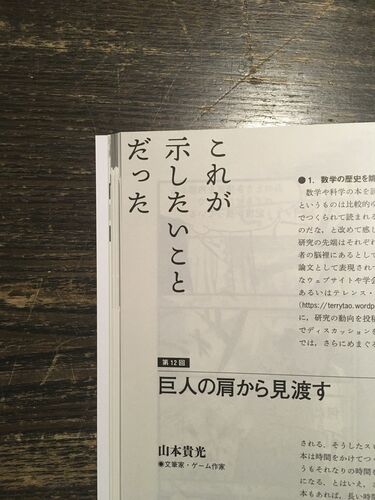 これが
示したいこと
だった
●1. 数学の歴史を
数学や科学の本を
というものは比較的
でつくられて読まれる
のだな，と改めて感
研究の先端はそれぞれ
者の脳裡にあるとして
論文として表現されて
なウェブサイトや学会
あるいはテレンス・
(https://terrytao.wordp
に，研究の動向を投稿
でディスカッションを
では，さらにめまぐ
第12回
巨人の肩から見渡す
山本貴光
●文筆家・ゲーム作家
される．そうしたス
本は時間をかけてつ
うもそれなりの時間
になる．とはいえ，
本もあれば，長い時